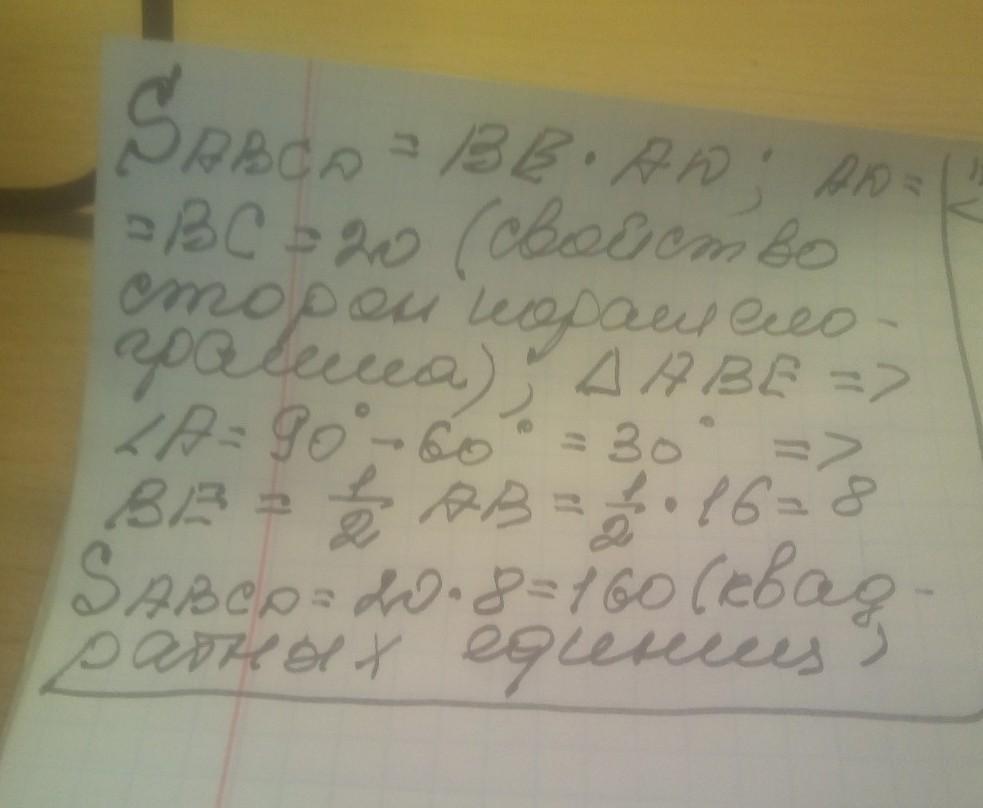 S ABCD = BE · AD; AD =
= BC = 20 (свойство
сторон паралело-
грамма); Δ ABE =>
∠A = 90° - 60° = 30° =>
BE = 1/2 AB = 1/2 · 16 = 8
S ABCD = 20 · 8 = 160 (квад-
ратных единиц)